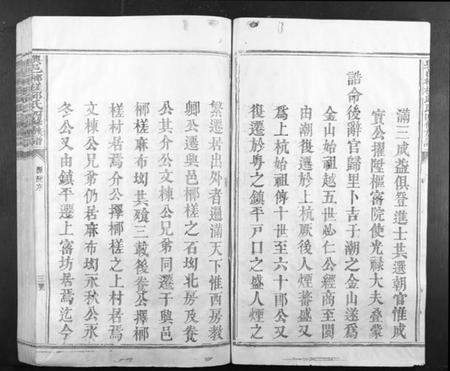 滿三成益俱登進士其選朝官惟成
實公擢陞樞密院使光祿大夫叠蒙
誥命後辭官歸里卜吉于潮之金山遂爲
金山始祖越五世必仁公經商至閩
由潮復遷於上杭厥後人煙蕃盛又
爲上杭始祖傳十世至六十郎公又
復遷於粵之鎮平戸口之盛人煙之
繁遷居出外者遍滿天下惟西房敦
卿公遷興邑梛槎之石坳北房及養
公其介公文棟公兄弟同遷于興邑
梛槎麻布坳其殮三載後養公擇梛
槎村居焉介公擇梛槎之上村居焉
文棟公兄弟仍居麻布坳永秋公永
冬公又由鎮平遷上富坊居焉迄今